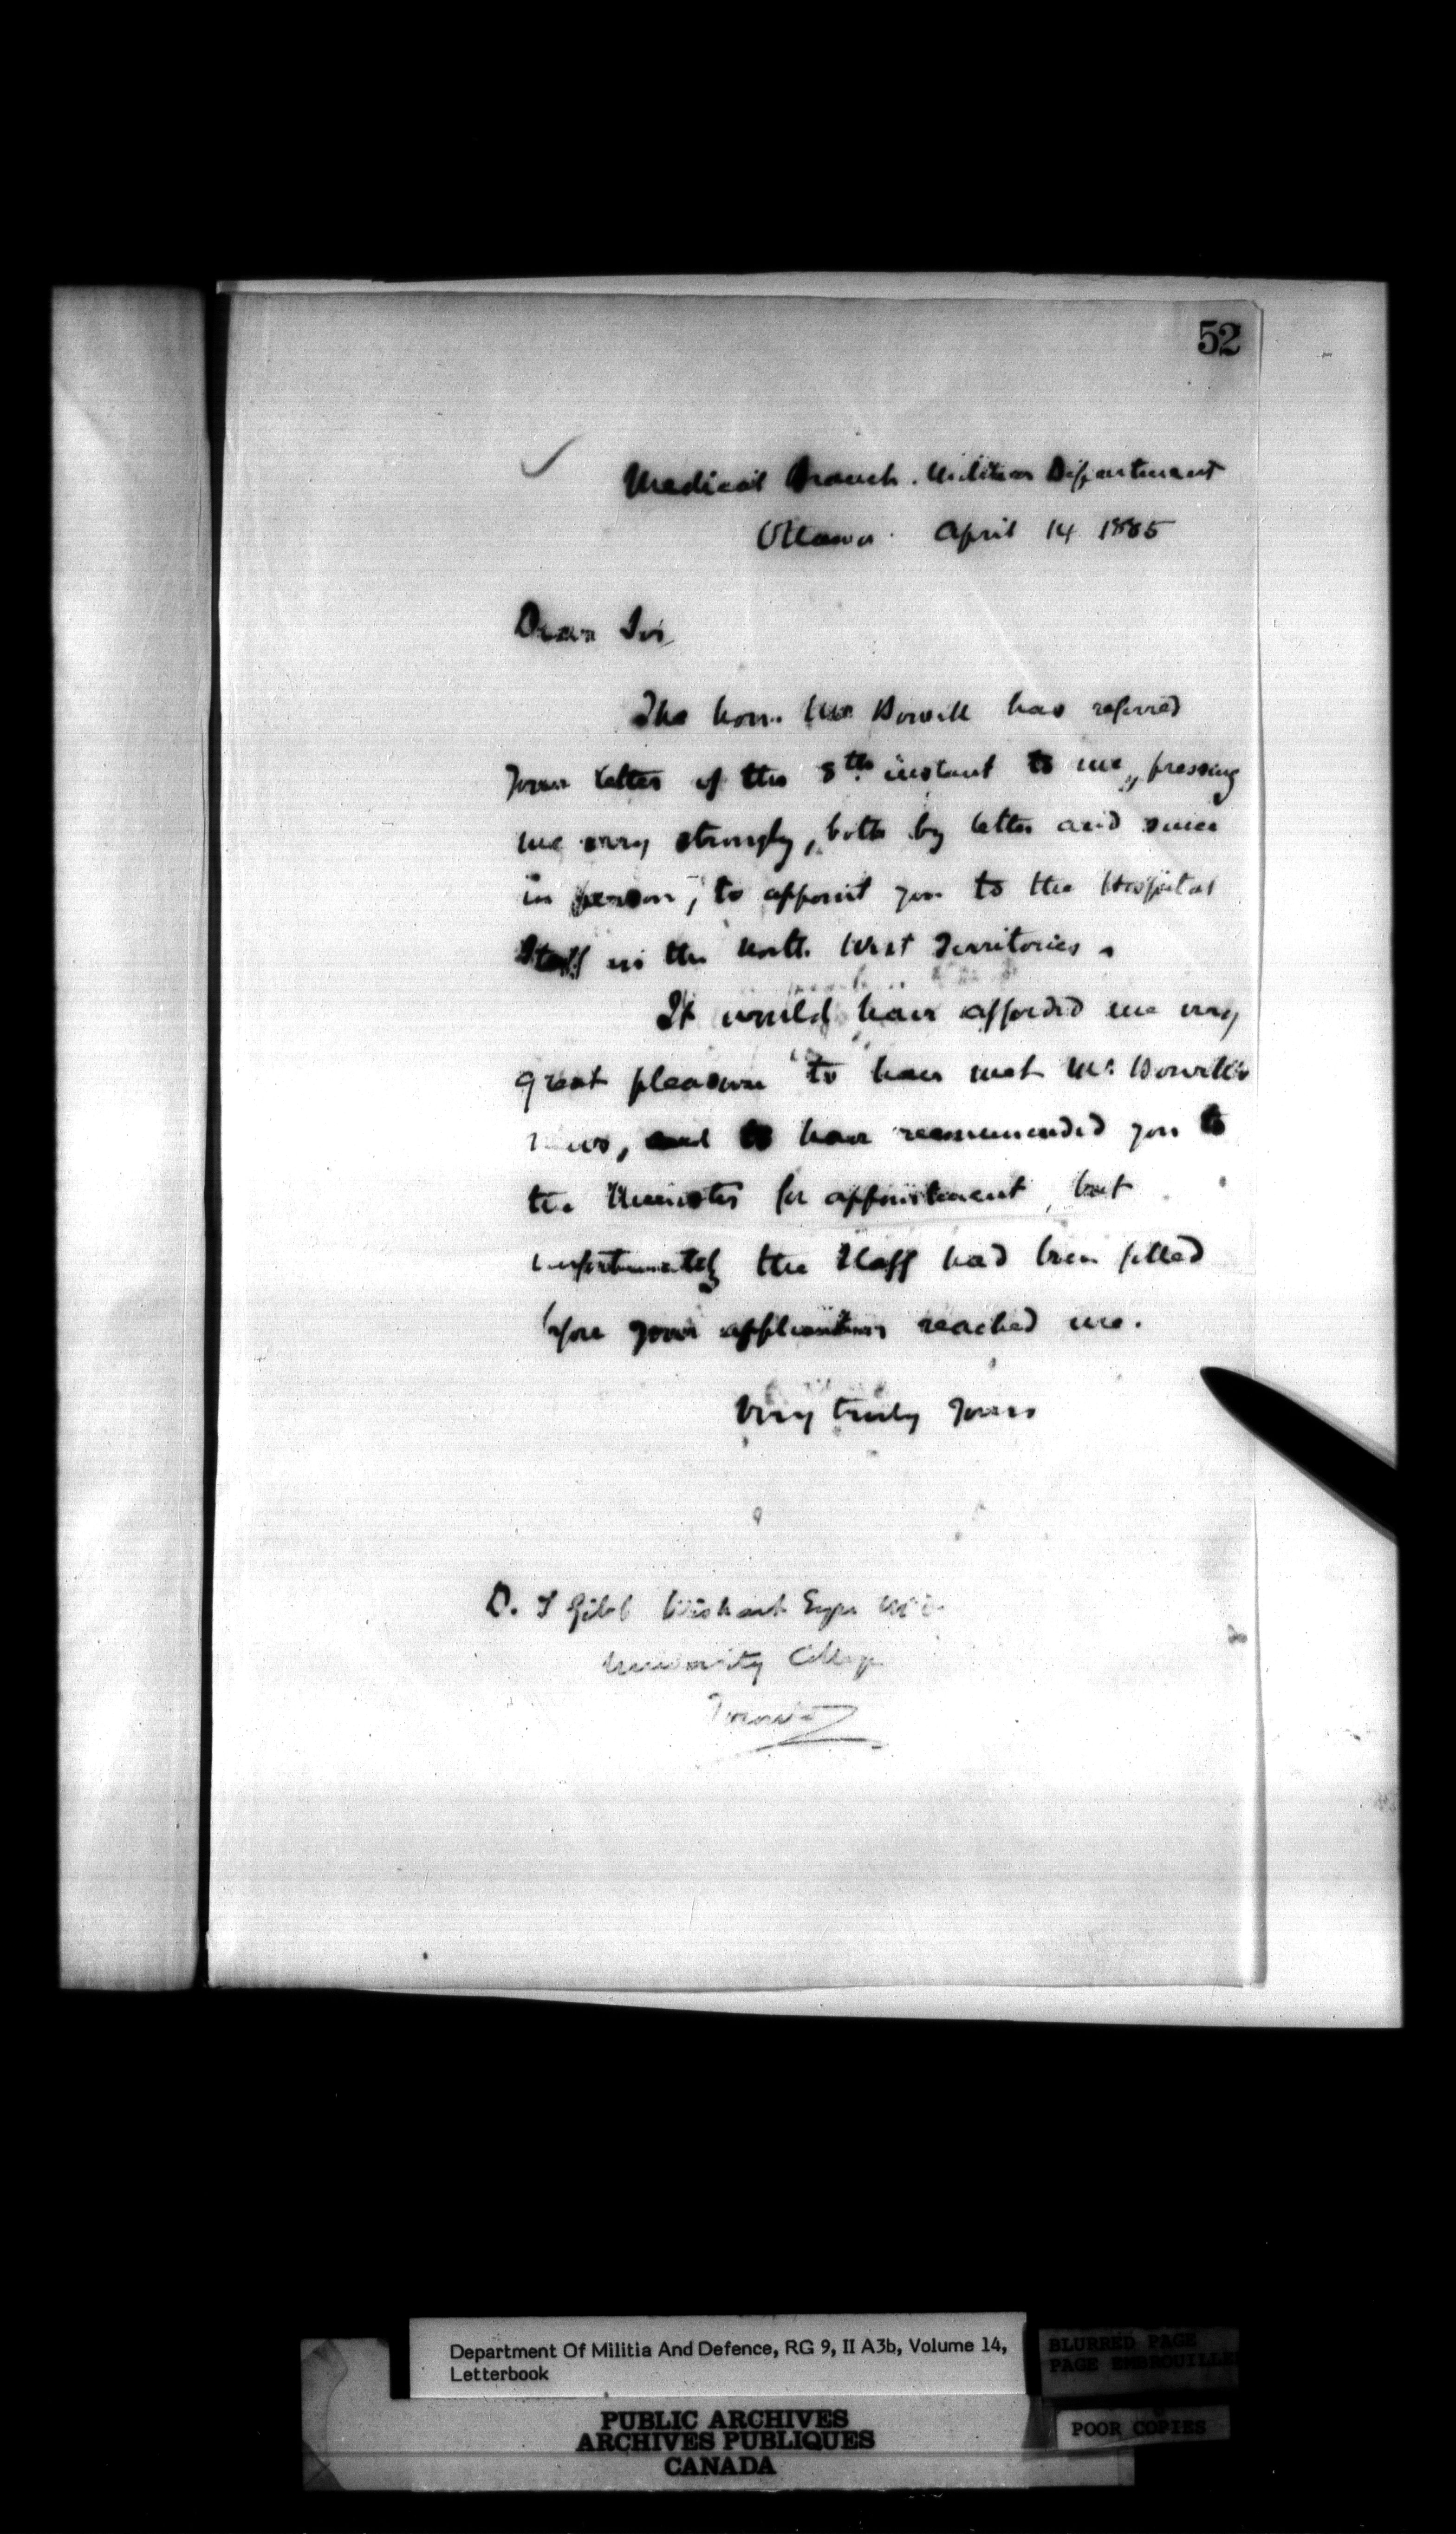 52
Medical Branch. Militia Department
Ottawa. April 14 1885
Dear Sir,
The hon. Mr Bowell has referred
your letter of the 8th instant to me, pressing
me very strongly, both by letter and since
in person, to appoint you to the Hospital
Staff in the North West Territories.
It would have afforded me very
great pleasure to have met Mr Bowell's
views, and to have recommended you to
the Minister for appointment, but
unfortunately the Staff had been filled
before your application reached me.
Very truly yours
D. J Gibb Wishart Esqre
University College
Toronto
Department Of Militia And Defence, RG 9, II A3b, Volume 14,
Letterbook
BLURRED PAGE
PAGE EMBROUILLE
POOR COPIES
PUBLIC ARCHIVES
ARCHIVES PUBLIQUES
CANADA